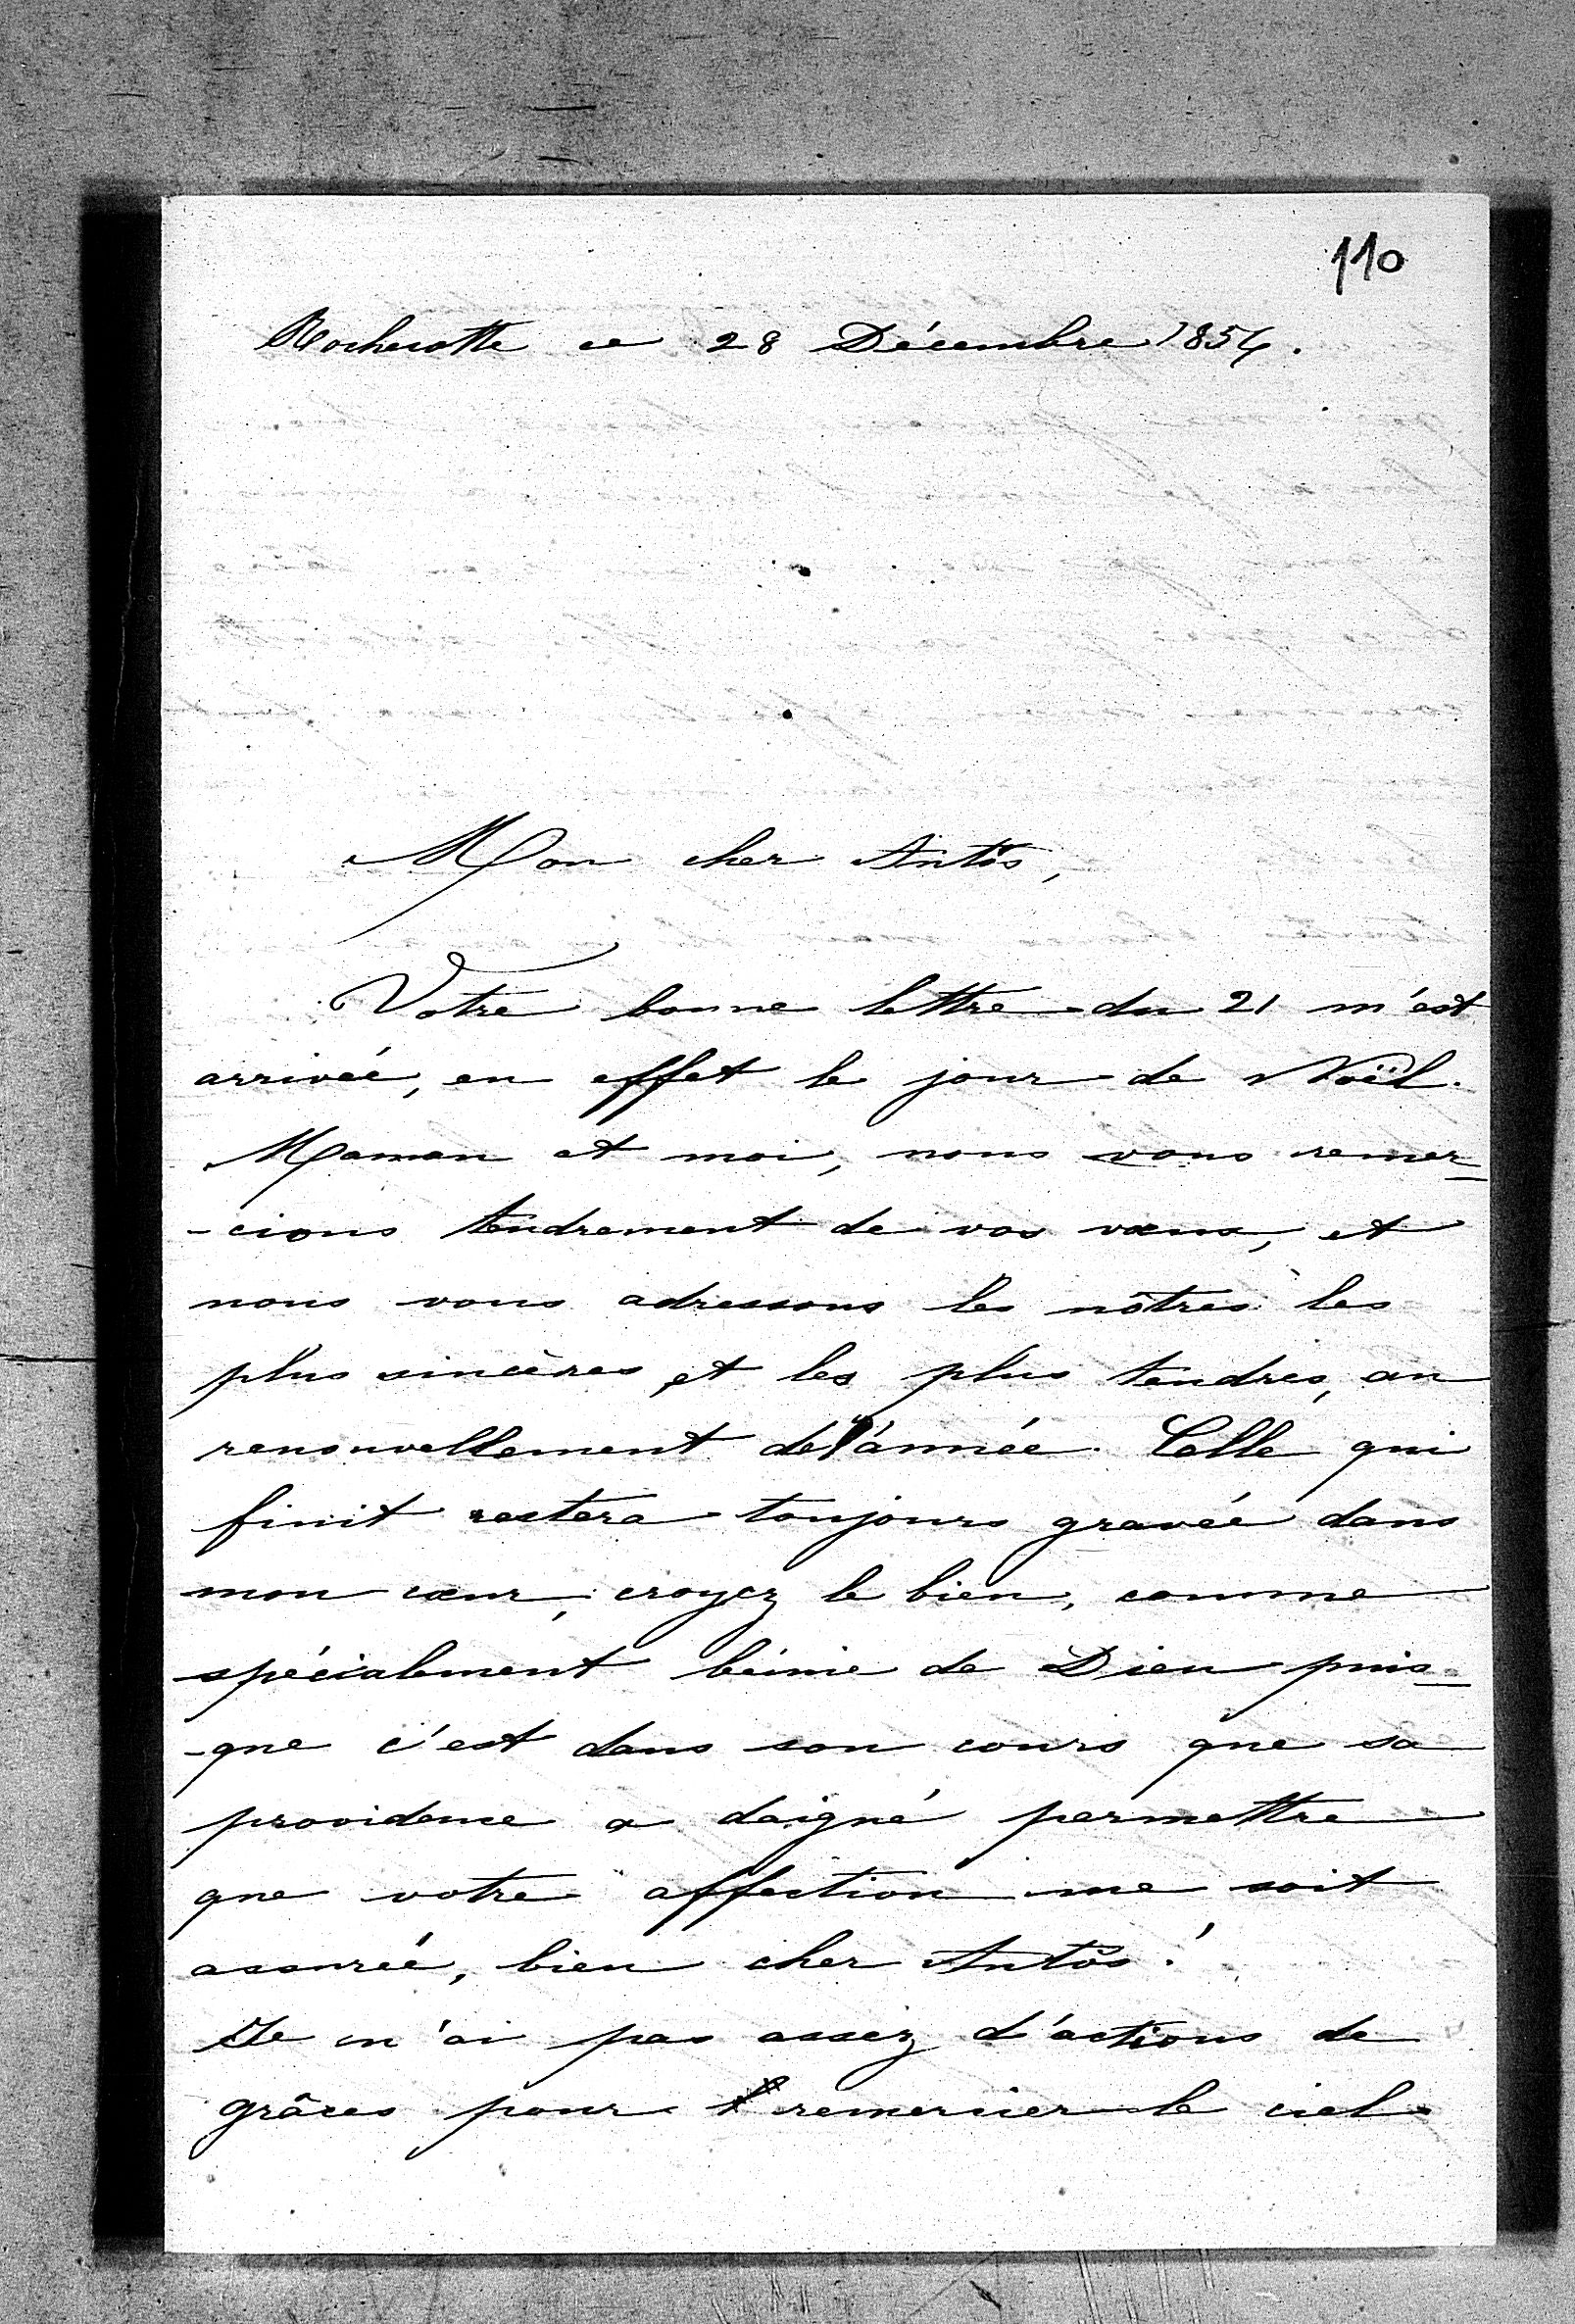 110
Rochecotte ce 28 Décembre 1854.
Mon cher Antôs,
Votre bonne lettre du 21 m'est
arrivée, en effet le jour de Noël.
Maman et moi, nous vous remer-
-cions tendrement de vos vœux, et
nous vous adressons les nôtres les
plus sincères et les plus tendres, au
renouvellement de l'année. Celle qui
finit restera toujours gravée dans
mon cœur, croyez le bien, comme
spécialement bénie de Dieu puis-
-que c'est dans son cours que sa
providence a daigné permettre
que votre affection me soit
assurée, bien cher Antôs!
Je n'ai pas assez d'actions de
grâces pour remercier le ciel